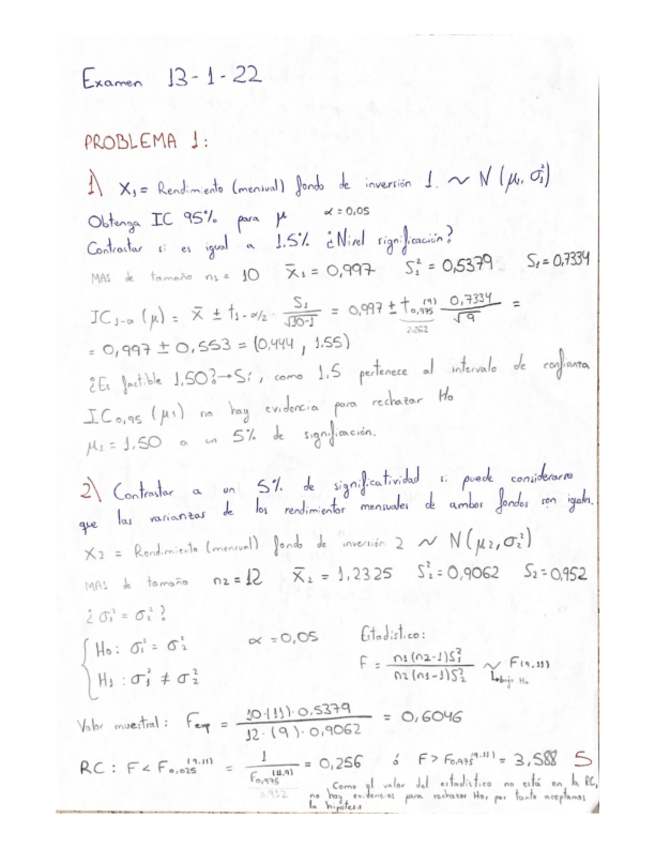 Examen 13-1-22
PROBLEMA 1:
1\ X₁ = Rendimiento (mensual) fondo de inversión 1. ~ N(μ, σ₁²)
Obtenga IC 95% para μ α = 0,05
Contrastar si es igual a 1.5% ¿Nivel significación?
MAS de tamaño n₁ = 10 X̄₁ = 0,997 S₁² = 0,5379 S₁ = 0,7334
IC₁₋α (μ) = X̄ ± t₁₋α/₂ · S₁/√10-1 = 0,997 ± t₀,₉₇₅⁽⁹⁾ 0,7334/√9 =
2.262
= 0,997 ± 0,553 = (0,444 , 1.55)
¿Es factible 1,50? → Sí, como 1.5 pertenece al intervalo de confianza
IC₀,₉₅ (μ₁) no hay evidencia para rechazar H₀
μ₁ = 1.50 a un 5% de significación.
2\ Contrastar a un 5% de significatividad si puede considerarse
que las varianzas de los rendimientos mensuales de ambos fondos son iguales.
X₂ = Rendimiento (mensual) fondo de inversión 2 ~ N(μ₂, σ₂²)
MAS de tamaño n₂ = 12 X̄₂ = 1,2325 S₂² = 0,9062 S₂ = 0,952
¿ σ₁² = σ₂² ?
H₀: σ₁² = σ₂² α = 0,05 Estadístico:
H₁ : σ₁² ≠ σ₂² F = n₁(n₂-1)S₁² / n₂(n₁-1)S₂² ~ F(9,11)
bajo H₀
Valor muestral: Fexp = 10·(11)·0,5379 / 12·(9)·0,9062 = 0,6046
RC: F < F₀,₀₂₅⁽⁹·¹¹⁾ = 1/F₀,₉₇₅⁽¹¹·⁹⁾ = 0,256 ó F > F₀,₉₇₅⁽⁹·¹¹⁾ = 3,588 5
3.912
Como el valor del estadístico no está en la RC,
no hay evidencias para rechazar H₀, por tanto aceptamos
la hipótesis